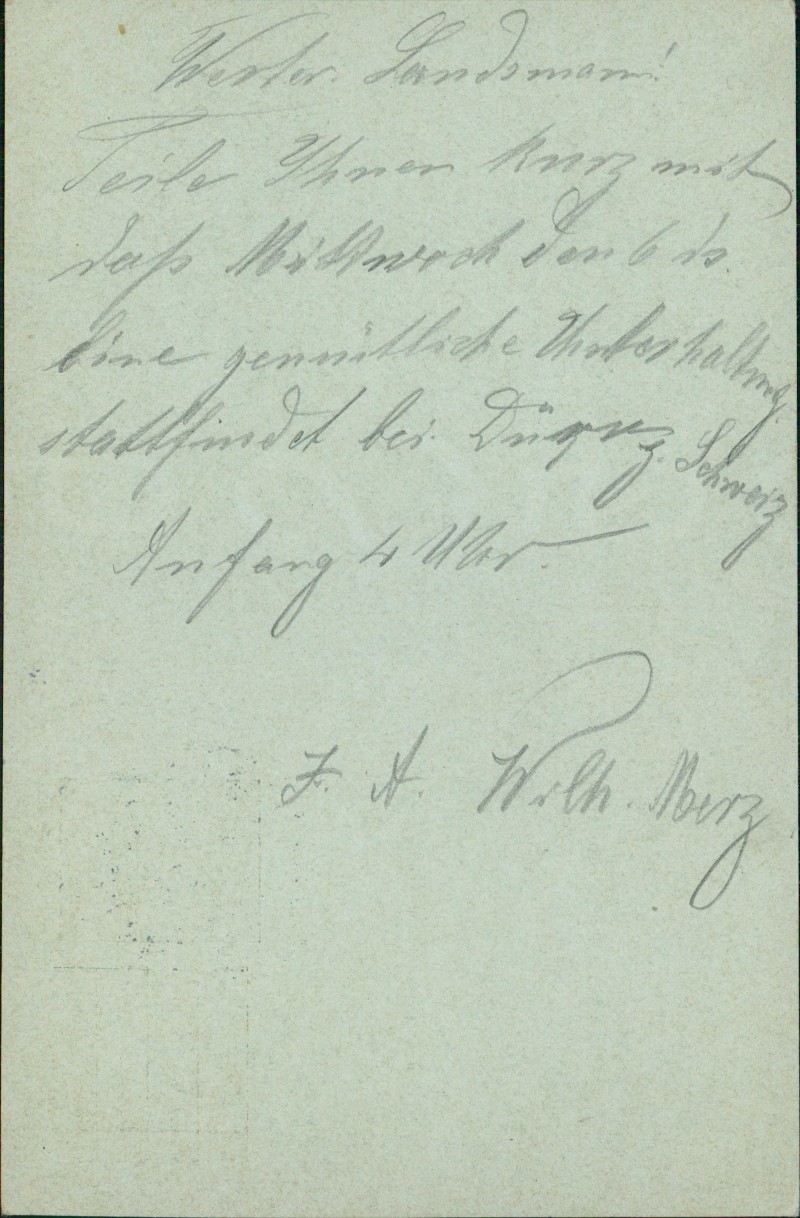 Werter. Landsmann!
Teile Ihnen kurz mit
daß Mittwoch den 6 ds.
eine gemütliche Unterhaltung.
stattfindet bei Schweiz
Anfang 4 Uhr.
I. A. Wilh. Merz